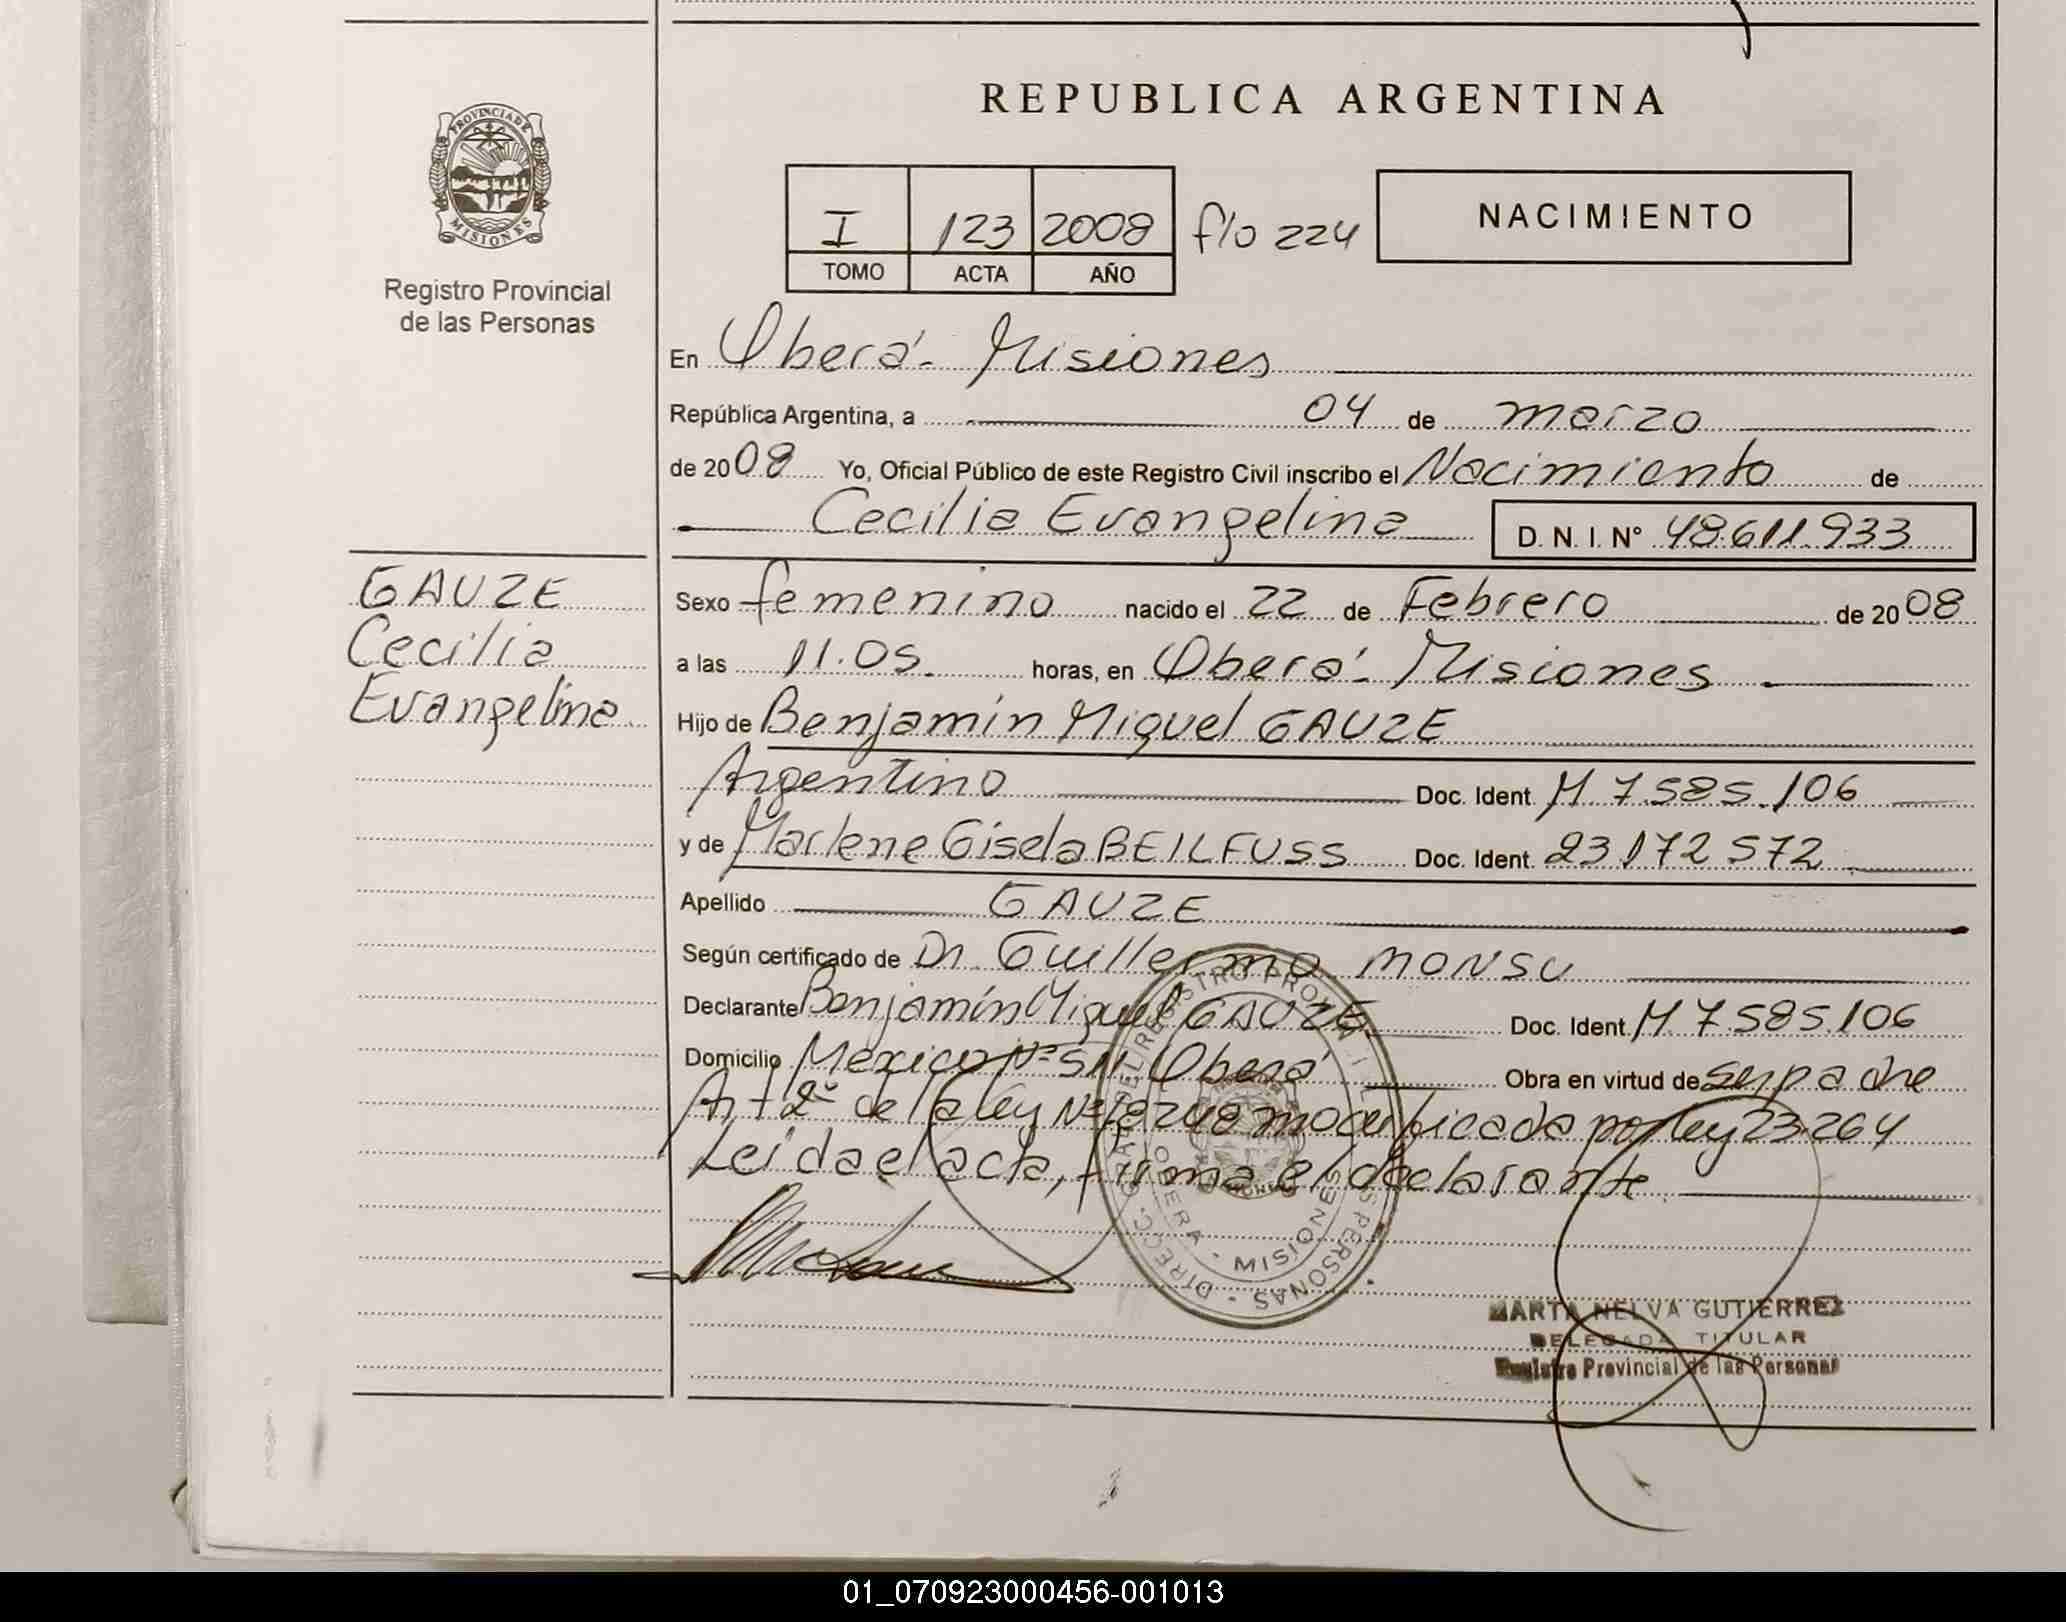 REPUBLICA ARGENTINA
PROVINCIA DE
MISIONES
Registro Provincial
de las Personas
I 123 2008 f/o 224
TOMO ACTA AÑO
NACIMIENTO
En Oberá - Misiones
República Argentina, a 04 de marzo
de 2008 Yo, Oficial Público de este Registro Civil inscribo el Nacimiento de
Cecilia Evangelina D. N. I. N° 48.611.933
GAUZE
Cecilia
Evangelina
Sexo femenino nacido el 22 de Febrero de 2008
a las 11.05. horas, en Oberá - Misiones
Hijo de Benjamín Miguel GAUZE
Argentino Doc. Ident. M 7.585.106
y de Marlene Gisela BEILFUSS Doc. Ident. 23172572
Apellido GAUZE
Según certificado de Dr. Guillermo MONSU
Declarante Benjamín Miguel GAUZE Doc. Ident. M 7.585.106
Domicilio Mexico Nº 511 Oberá Obra en virtud de ser padre
Art 2º de la ley Nº 18248 modificada por ley 23.264
Leida el acta, firma el declarante
OBERA - MISIONES
MARTA NELVA GUTIERREZ
DELEGADA TITULAR
Registro Provincial de las Personas
01_070923000456-001013